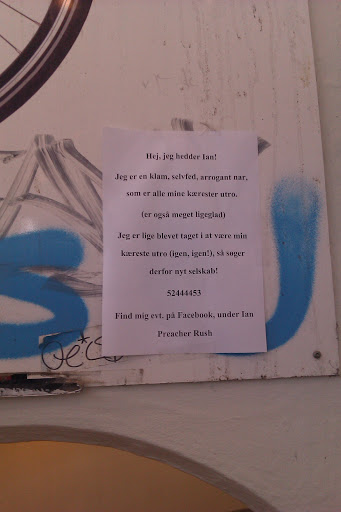 Hej, jeg hedder Ian!
Jeg er en klam, selvfed, arrogant nar,
som er alle mine kærester utro.
(er også meget ligeglad)
Jeg er lige blevet taget i at være min
kæreste utro (igen, igen!), så søger
derfor nyt selskab!
52444453
Find mig evt. på Facebook, under Ian
Preacher Rush